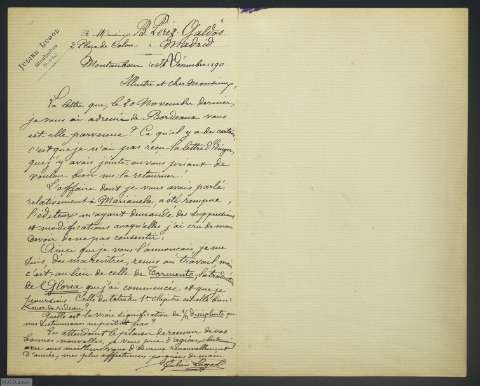 à Monsieur B. Pérez Galdós
2 Plaza de Colon à Madrid
JULIEN LUGOL
Montauban
Illustre et cher Monsieur,
La lettre que, le 20 Novembre dernier,
je vous ai adressée de Bordeaux vous
est-elle parvenue? Ce qu'il y a de certain,
c'est que je n'ai pas reçu la lettre
que j'y avais jointe en vous priant de
vouloir bien me la retourner!
L'affaire dont je vous avais parlé
relativement à Marianela, a été rompue,
l'éditeur m'ayant demandé des suppressions
et modifications auxquelles j'ai cru de mon
devoir de ne pas consentir.
Ainsi que je vous l'annonçais je me
suis, dès ma rentrée, remis au travail mais
c'est au lieu de celle de Tormento, la traduction
de Gloria que j'ai commencée et que je
poursuis. Celle du 1er chapitre est-elle bien:
Lever de rideau?
Quelle est la vraie signification de
En attendant le plaisir de recevoir de vos
bonnes nouvelles, je vous prie d'agréer,
avec mes meilleurs vœux de
d'année, une plus affectueuse poignée de main
Julien Lugol